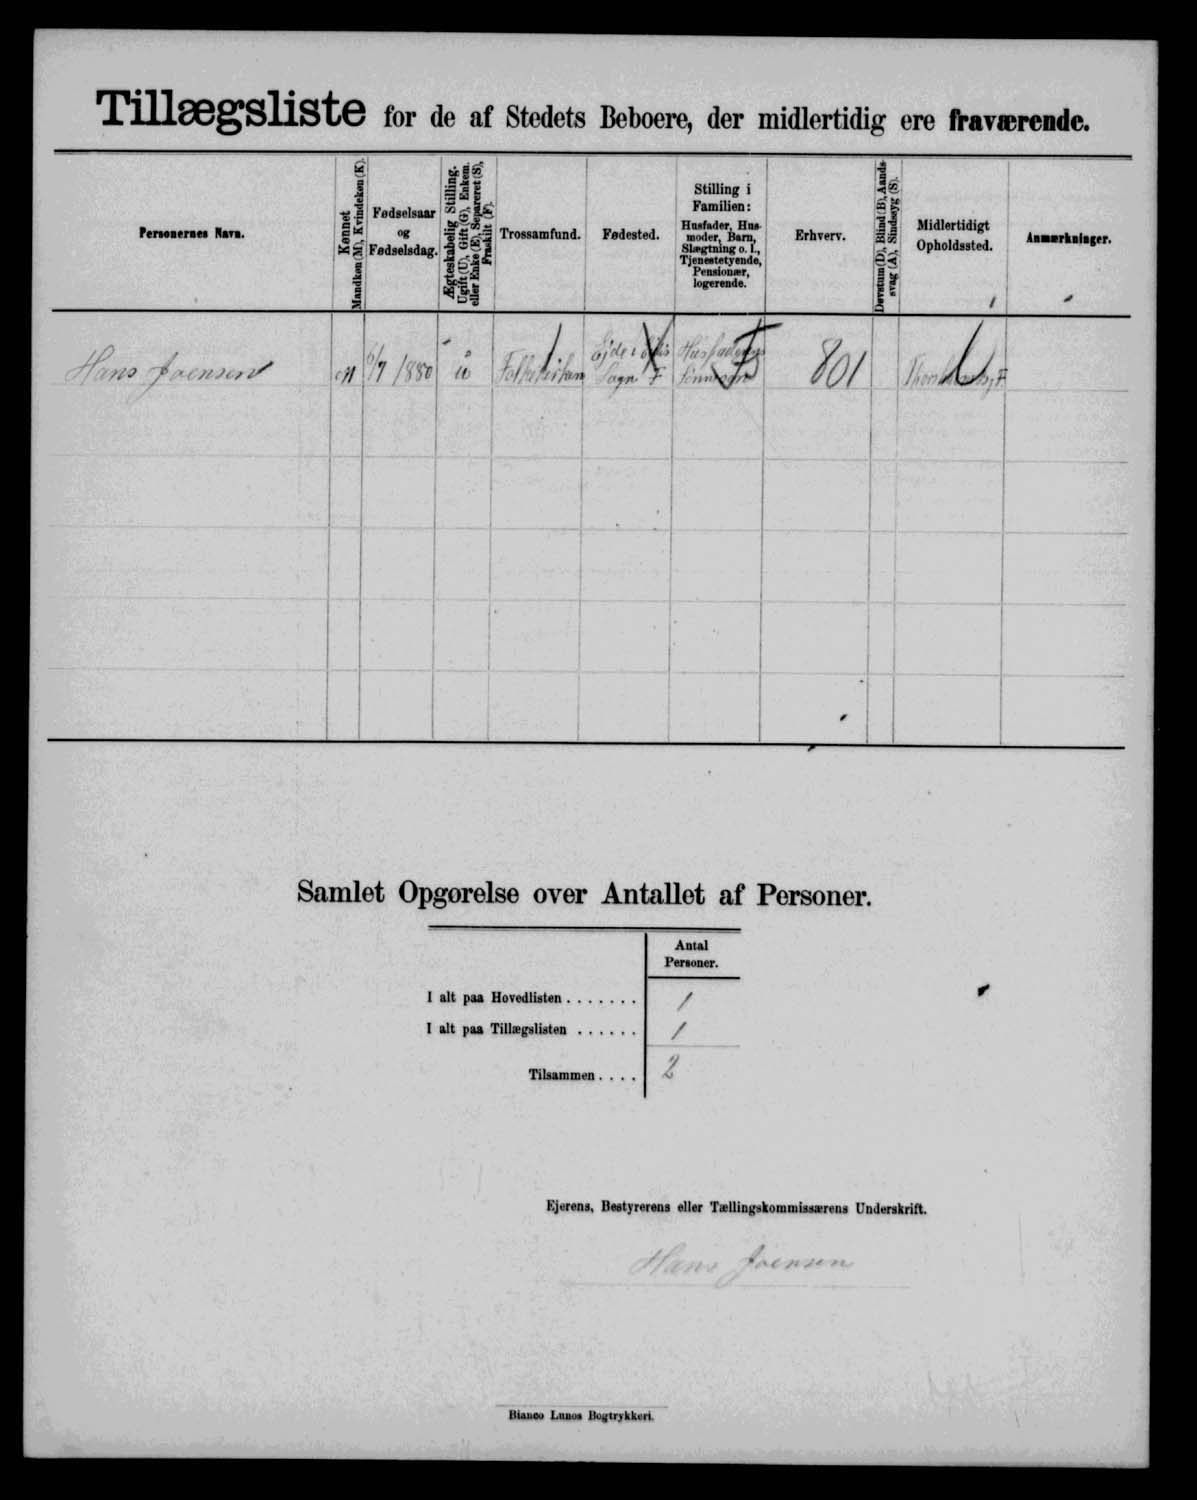 Tillægsliste for de af Stedets Beboere, der midlertidig ere fraværende.
Personernes Navn.
Kønnet
Mandkøn (M), Kvindekøn (K).
Fødselsaar
og
Fødselsdag.
Ægteskabelig Stilling.
Ugift (U), Gift (G), Enkem.
eller Enke (E), Separeret (S),
Fraskilt (F).
Trossamfund.
Fødested.
Stilling i
Familien:
Husfader, Hus-
moder, Barn,
Slægtning o. l.,
Tjenestetyende,
Pensionær,
logerende.
Erhverv.
Døvstum (D), Blind (B), Aands-
svag (A), Sindssyg (S).
Midlertidigt
Opholdssted.
Anmærkninger.
Hans Joensen
M
6/7 1880
u
Folkekirken
Ejde i
Sogn F
Husfaderens
801
F
Samlet Opgørelse over Antallet af Personer.
Antal
Personer.
I alt paa Hovedlisten . . . . . . . 1
I alt paa Tillægslisten . . . . . . 1
Tilsammen . . . . 2
Ejerens, Bestyrerens eller Tællingskommissærens Underskrift.
Hans Joensen
Bianco Lunos Bogtrykkeri.